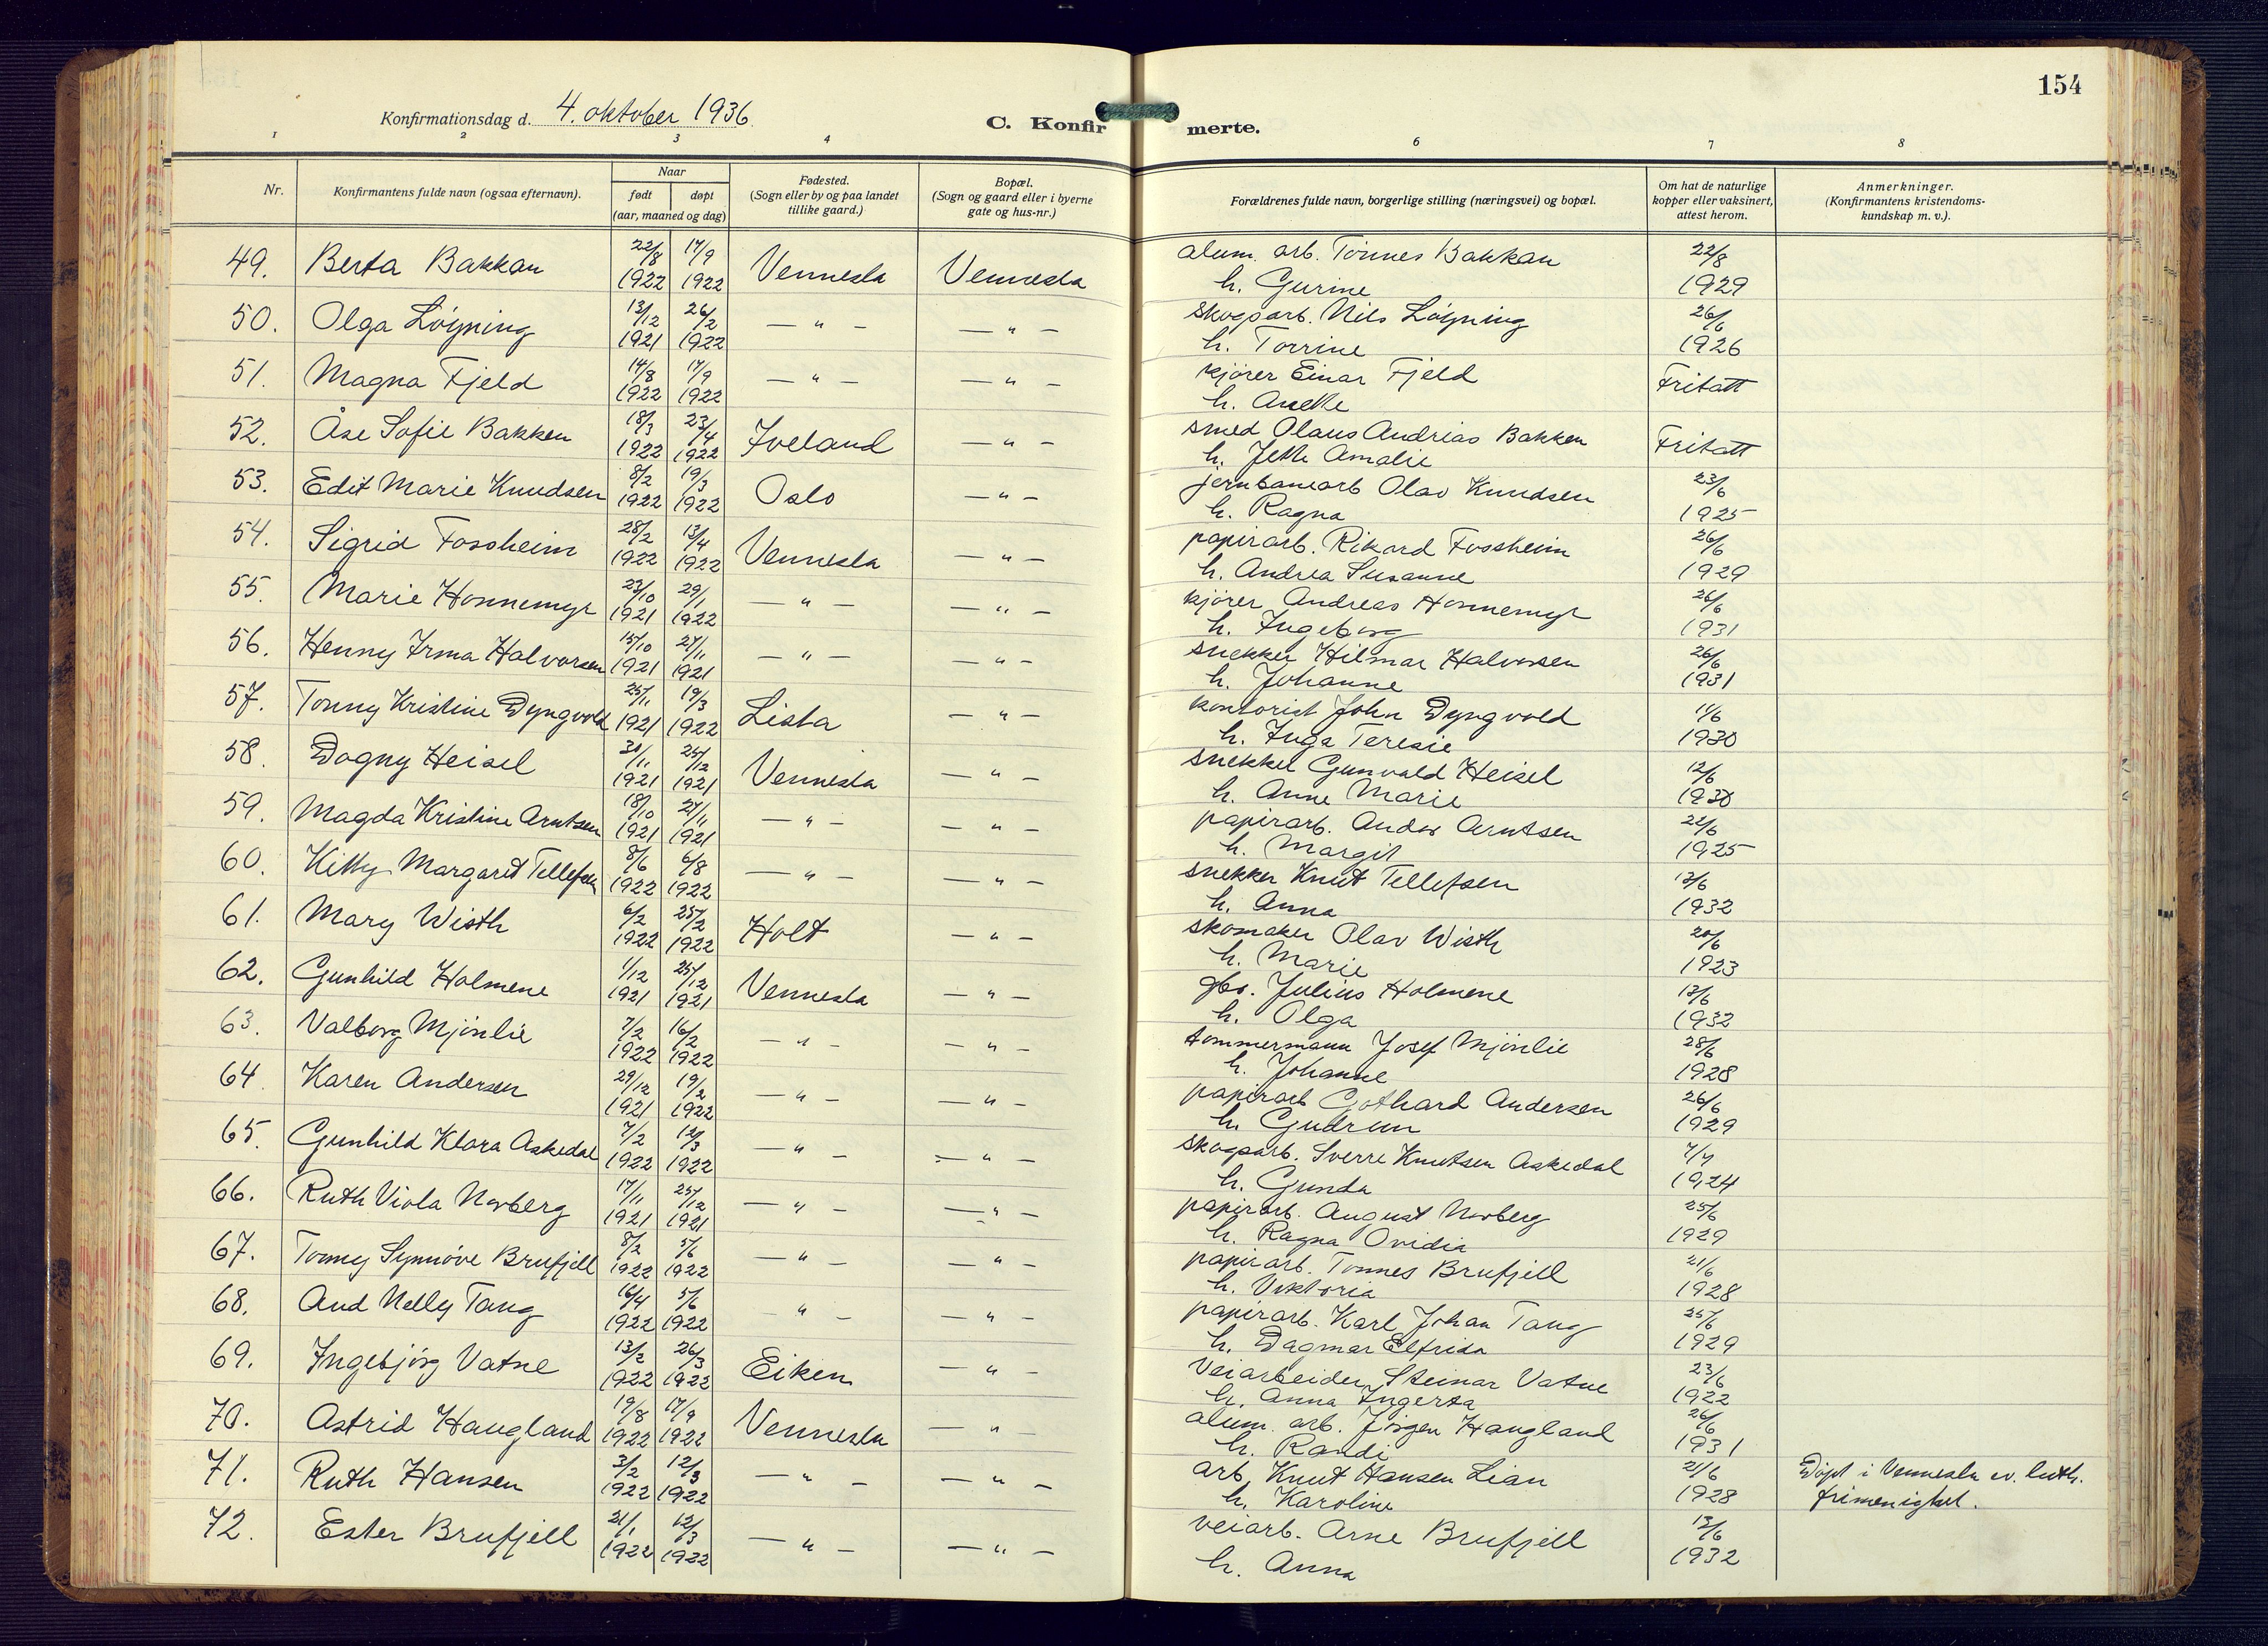 154
Konfirmationsdag d. 4. oktober 1936
C. Konfirmerte.
1 2 3 4 6 7 8
Nr.
Konfirmantens fulde navn (ogsaa efternavn).
Naar
født døpt
(aar, maaned og dag)
Fødested.
(Sogn eller by og paa landet
tillike gaard.)
Bopæl.
(Sogn og gaard eller i byerne
gate og hus-nr.)
Forældrenes fulde navn, borgerlige stilling (næringsvei) og bopæl.
Om hat de naturlige
kopper eller vaksinert,
attest herom.
Anmerkninger.
(Konfirmantens kristendoms-
kundskap m. v.).
49. Berta Bakkan 22/8 1922 17/9 1922 Vennesla Vennesla alum. arb. Tønnes Bakkan 22/8
h. Gurine 1929
50. Olga Løyning 13/12 1921 26/2 1922 — " — — " — skogsarb. Nils Løyning 26/6
h. Torrine 1926
51. Magna Fjeld 14/8 1922 17/9 1922 — " — — " — kjører Einar Fjeld Fritatt
h. Anette
52. Åse Sofie Bakken 18/3 1922 23/4 1922 Iveland — " — smed Olaus Andrias Bakken Fritatt
h. Jette Amalie
53. Edit Marie Knudsen 8/2 1922 19/3 1922 Oslo — " — jernbanearb Olav Knudsen 23/6
h. Ragna 1925
54. Sigrid Fossheim 28/2 1922 13/4 1922 Vennesla — " — papirarb. Rikard Fossheim 26/6
h. Andrea Susanne 1929
55. Marie Honnemyr 23/10 1921 29/1 1922 — " — — " — kjører Andreas Honnemyr 26/6
h. Ingeborg 1931
56. Henny Irma Halvorsen 15/10 1921 27/11 1921 — " — — " — snekker Hilmar Halvorsen 26/6
h. Johanne 1931
57. Tonny Kristine Dyngvold 25/11 1921 19/3 1922 Lista — " — kontorist John Dyngvold 11/6
h. Inga Teresie 1930
58. Dagny Heisel 30/11 1921 25/12 1921 Vennesla — " — snekker Gunvald Heisel 12/6
h. Anne Marie 1930
59. Magda Kristine Arntsen 18/10 1921 27/11 1921 — " — — " — papirarb. Anders Arntsen 22/6
h. Margit 1925
60. Kitty Margaret Tellefsen 8/6 1922 6/8 1922 — " — — " — snekker Knut Tellefsen 13/6
h. Anna 1932
61. Mary Wisth 6/2 1922 25/2 1922 Holt — " — skomaker Olav Wisth 20/6
h. Marie 1923
62. Gunhild Holmene 1/12 1921 25/12 1921 Vennesla — " — gbr. Julius Holmene 13/6
h. Olga 1932
63. Valborg Mjønlie 7/2 1922 16/2 1922 — " — — " — tømmermann Josef Mjønlie 28/6
h. Johanne 1928
64 Karen Andersen 29/12 1921 19/2 1922 — " — — " — papirarb Gothard Andersen 26/6
h. Gudrun 1929
65. Gunhild Klara Askedal 7/2 1922 12/3 1922 — " — — " — skogsarb. Sverre Knutsen Askedal 7/7
h. Gunda 1924
66. Ruth Viola Norberg 17/11 1921 25/12 1921 — " — — " — papirarb. August Norberg 25/6
h. Ragna Ovidia 1929
67. Tonny Synnøve Brufjell 8/2 1922 5/6 1922 — " — — " — papirarb. Tønnes Brufjell 21/6
h. Viktoria 1928
68. Aud Nelly Tang 16/4 1922 5/6 1922 " — — " — papirarb. Karl Johan Tang 25/6
h. Dagmar Elfrida 1929
69. Ingebjørg Vatne 13/2 1922 26/3 1922 Eiken — " — Veiarbeider Steinar Vatne 23/6
h. Anna Ingerta 1922
70. Astrid Haugland 19/8 1922 17/9 1922 Vennesla — " — alum. arb. Jørgen Haugland 26/6
h. Randi 1931
71. Ruth Hansen 3/2 1922 12/3 1922 — " — — " — arb. Knut Hansen Lian 21/6 Døpt i Vennesla ev. luth.
h. Karoline 1928 frimenighet.
72. Ester Brufjell 21/1 1922 12/3 1922 — " — — " — veiarb. Arne Brufjell 13/6
h. Anna 1932